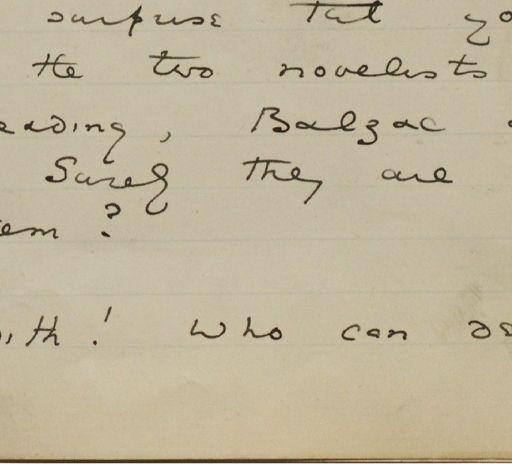 surprise that yo
the two novelists
eading, Balzac
Surely they are
em?
ith! Who can de